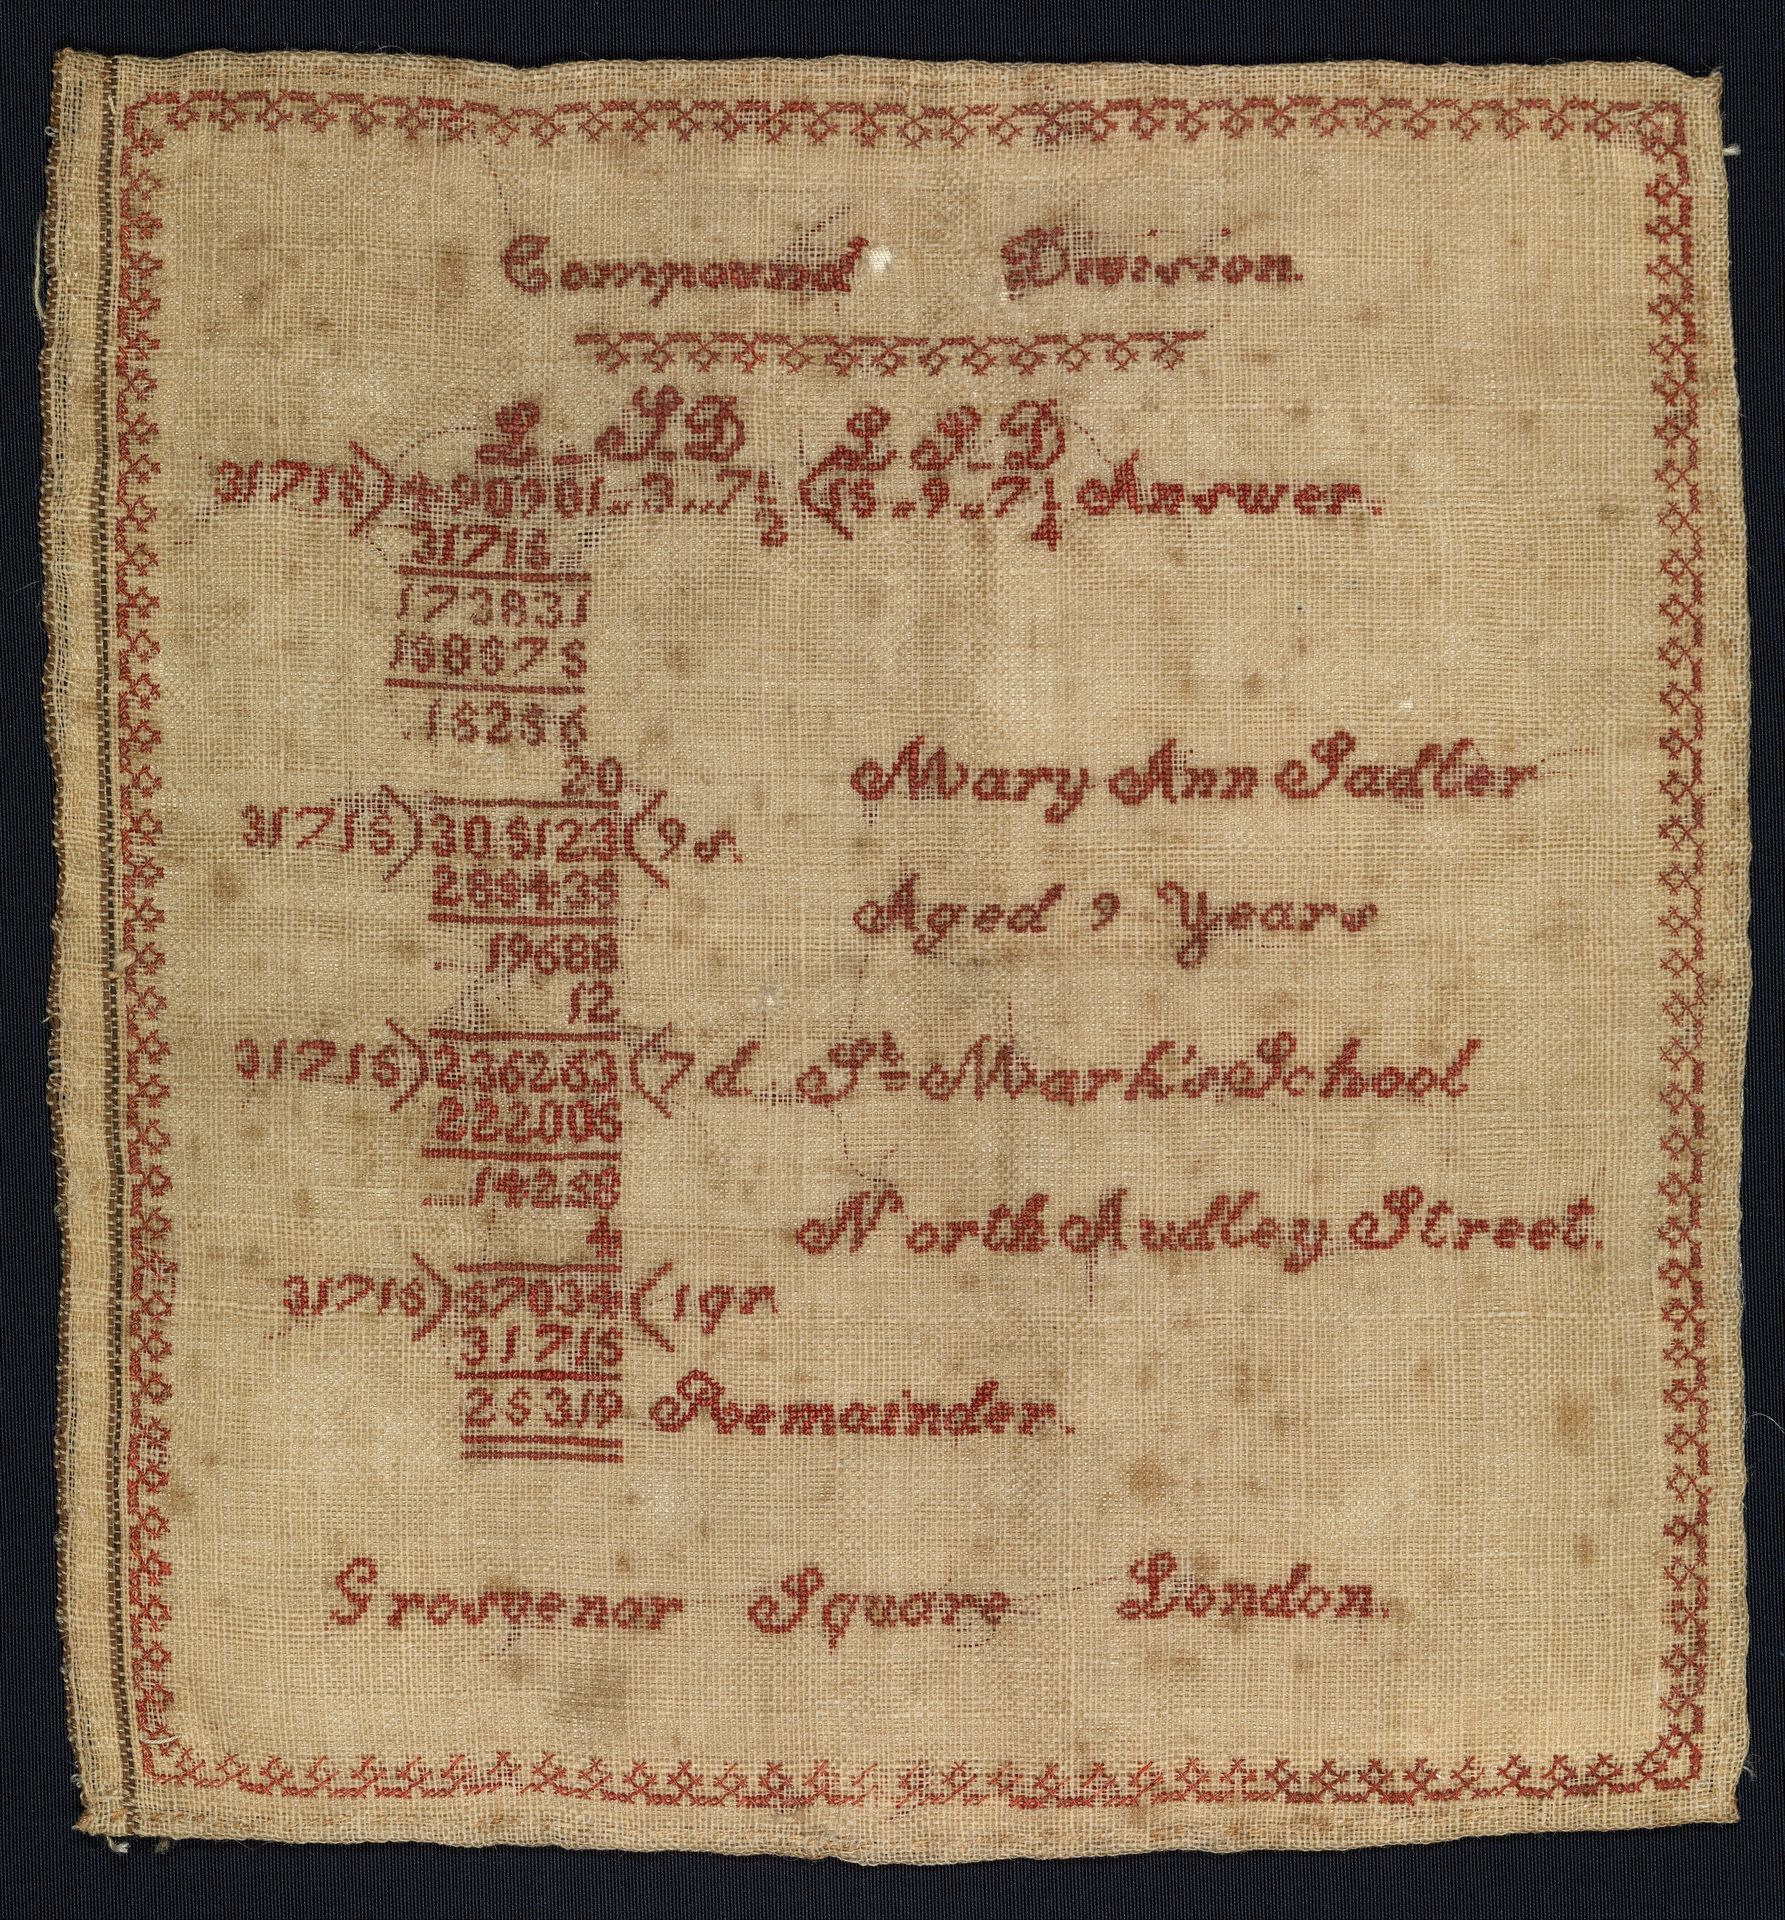 Compound Division.
L S D L S D
31715)490981..3..7 1/2 (15..9..7 1/4 Answer.
31715
173831
158575
15256
20
31715)305123(9s.
285435
19688
12
31715)236263(7d.
222005
14258
4
31715)57034(1qr.
31715
25319 Remainder.
Mary Ann Sadler
Aged 9 Years
St Mark's School
North Audley Street.
Grosvenor Square London.